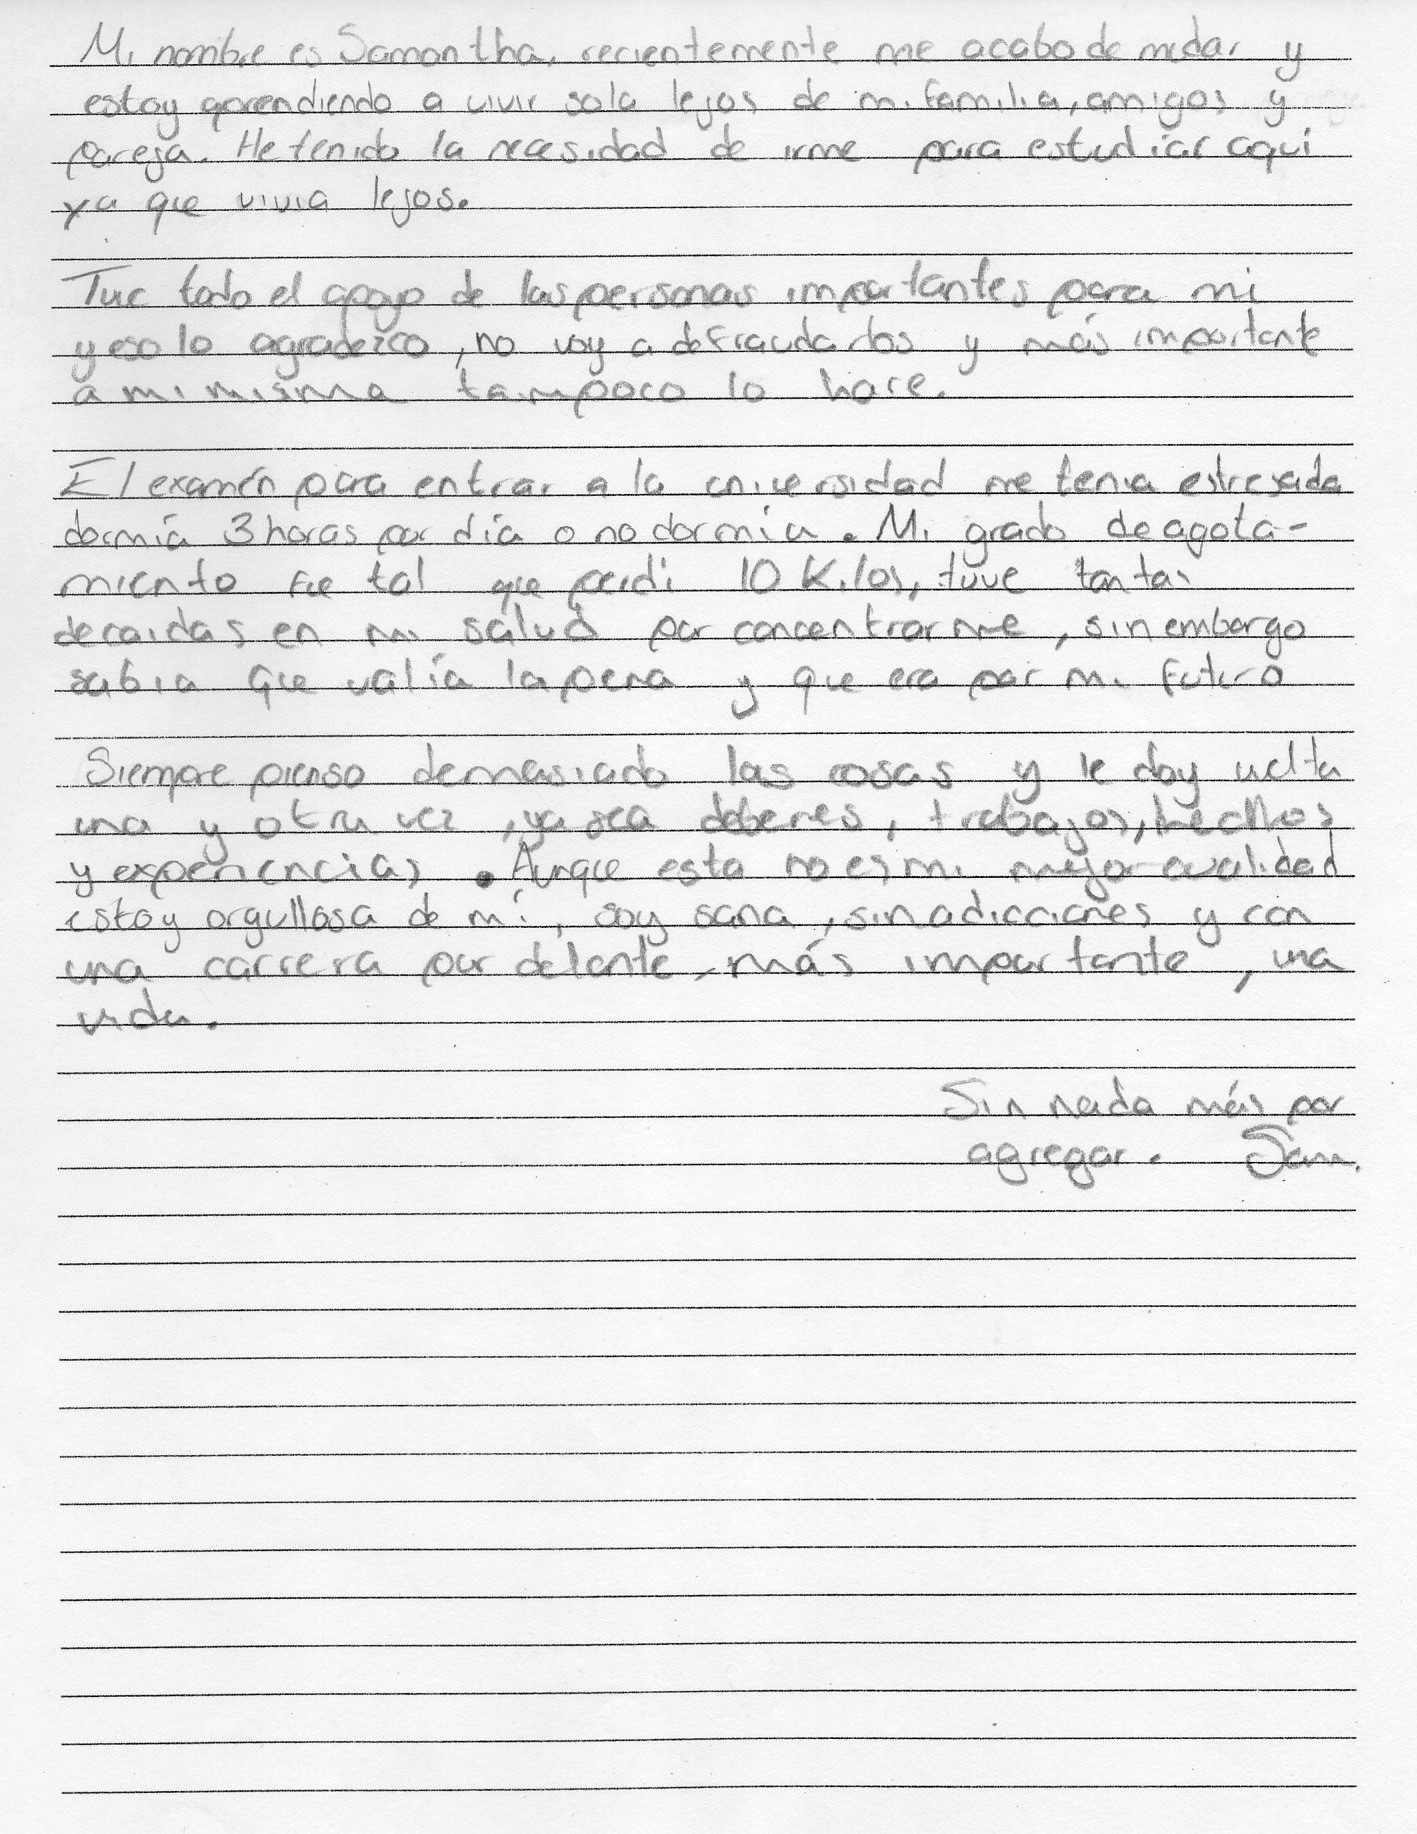 Mi nombre es Samantha, recientemente me acabo de mudar y
estoy aprendiendo a vivir sola lejos de mi familia, amigos y
pareja. He tenido la necesidad de irme para estudiar aquí
ya que vivia lejos.
Tuve todo el apoyo de las personas importantes para mi
y eso lo agradezco, no voy a defraudarlos y más importante
a mi misma tampoco lo hare.
El examén para entrar a la universidad me tenia estresada
dormía 3 horas por día o no dormía. Mi grado de agota-
miento fue tal que perdi 10 Kilos, tuve tantas
decaidas en mi salud por concentrarme, sin embargo
sabia que valía la pena y que era por mi futuro
Siempre pienso demasiado las cosas y le doy vuelta
una y otra vez, ya sea deberes, trabajos, hechos
y experiencias. Aunque esta no es mi mejor cualidad
estoy orgullosa de mí, soy sana, sin adicciones y con
una carrera por delante, más importante, una
vida.
Sin nada más por
agregar. Sam.